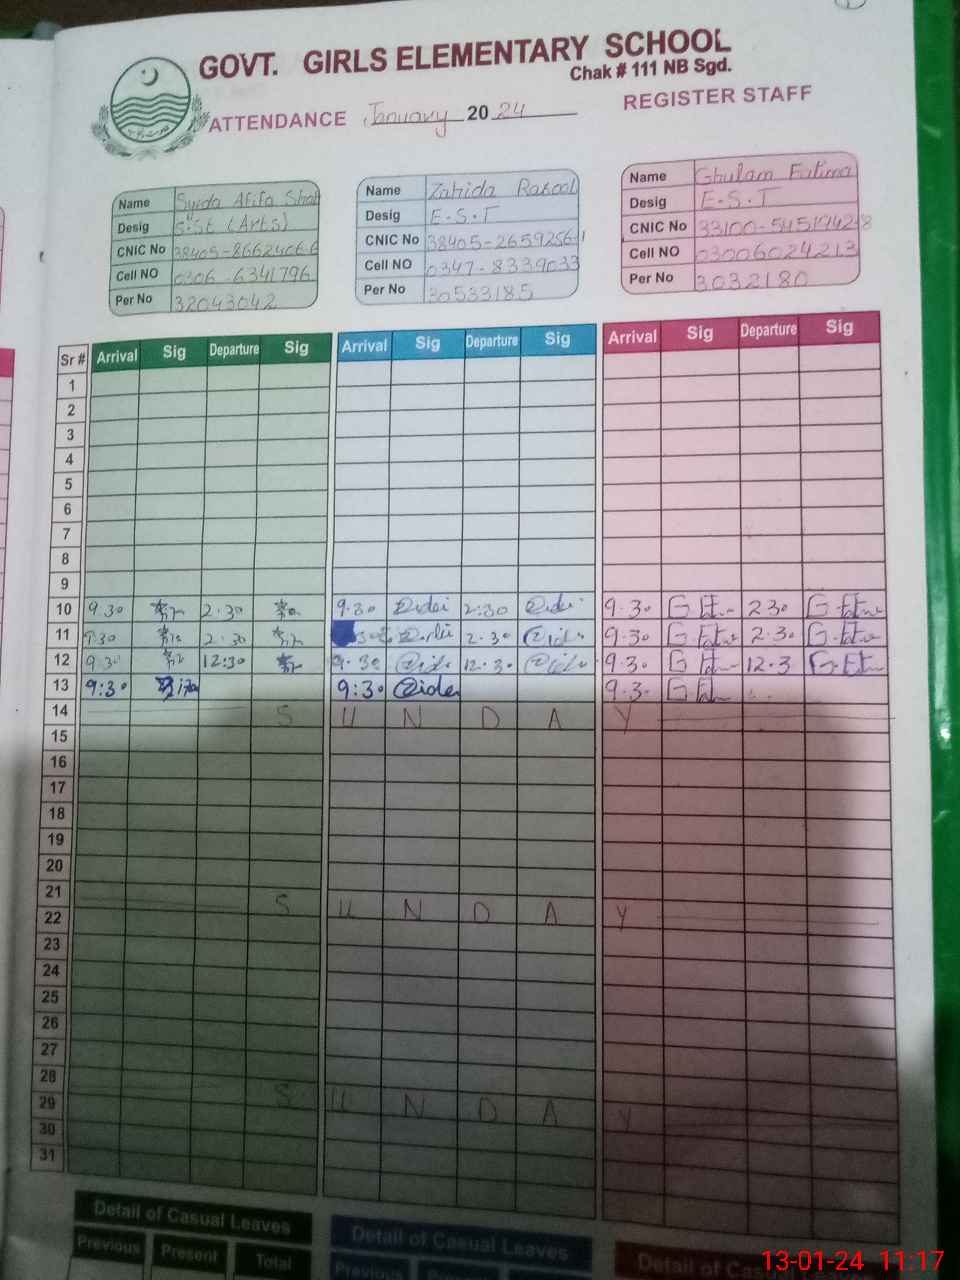 GOVT. GIRLS ELEMENTARY SCHOOL
Chak # 111 NB Sgd.
ATTENDANCE January 20 24 REGISTER STAFF
Name Syida Afifa Shah
Desig S.St (Arts)
CNIC No 38405-86624066
Cell NO 0306-6341796
Per No 32043042
Name Zahida Rasool
Desig E.S.T
CNIC No 38405-2659256-1
Cell NO 0347-8339033
Per No 30533185
Name Ghulam Fatima
Desig E.S.T
CNIC No 33100-5451942-8
Cell NO 03006024213
Per No 3032180
Sr # Arrival Sig Departure Sig Arrival Sig Departure Sig Arrival Sig Departure Sig
1
2
3
4
5
6
7
8
9
10 9.30 2.30 9.30 2:30 9.30 2 30
11 9.30 2.30 2.30 9.30 2.30
12 9.30 12:30 9.30 12.30 9.30 12.3
13 9:30 9:30 9.3
14 S U N D A Y
15
16
17
18
19
20
21 S U N D A Y
22
23
24
25
26
27
28 S U N D A Y
29
30
31
Detail of Casual Leaves Detail of Casual Leaves Detail of Cas
Previous Present Total Previous
13-01-24 11:17